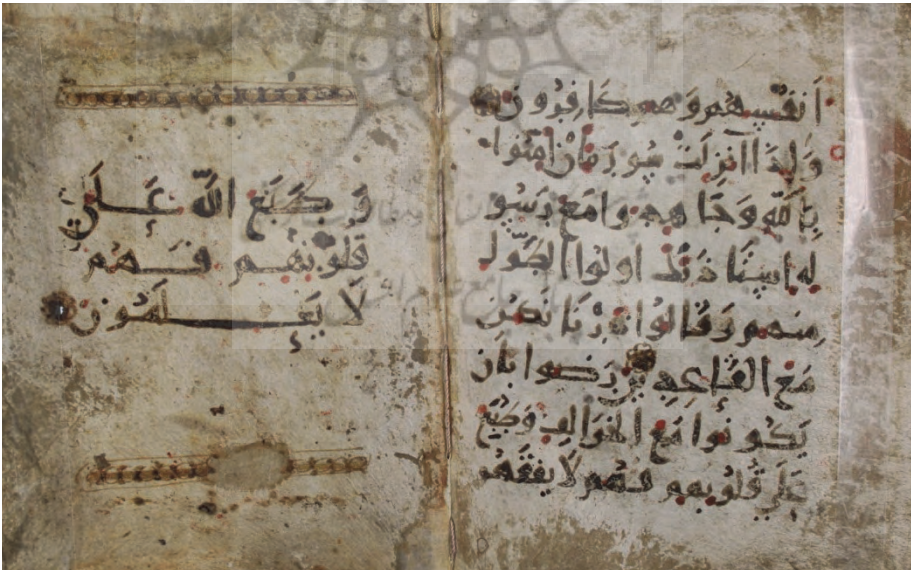 أَنفُسِهِمْ وَهُمْ كَافِرُونَ
وَإِذَا أُنزِلَتْ سُورَةٌ أَنْ آمَنُوا
بِاللَّهِ وَجَاهِدُوا مَعَ رَسُو
لِهِ اسْتَأْذَنَكَ أُولُوا الطَّوْلِ
مِنْهُمْ وَقَالُوا ذَرْنَا نَكُنْ
مَعَ الْقَاعِدِينَ رَضُوا بِأَن
يَكُونُوا مَعَ الْخَوَالِفِ وَطُبِعَ
عَلَى قُلُوبِهِمْ فَهُمْ لَا يَفْقَهُو
وَطَبَعَ اللَّهُ عَلَى
قُلُوبِهِمْ فَهُمْ
لَا يَعْلَمُونَ